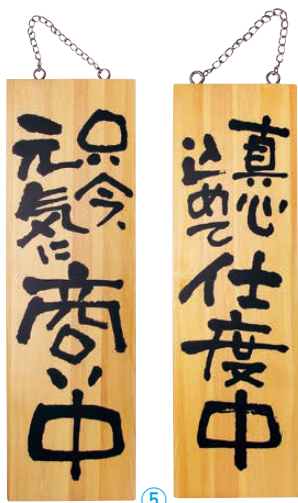 只今、
元気に
商い中
真心
込めて
仕度中
5